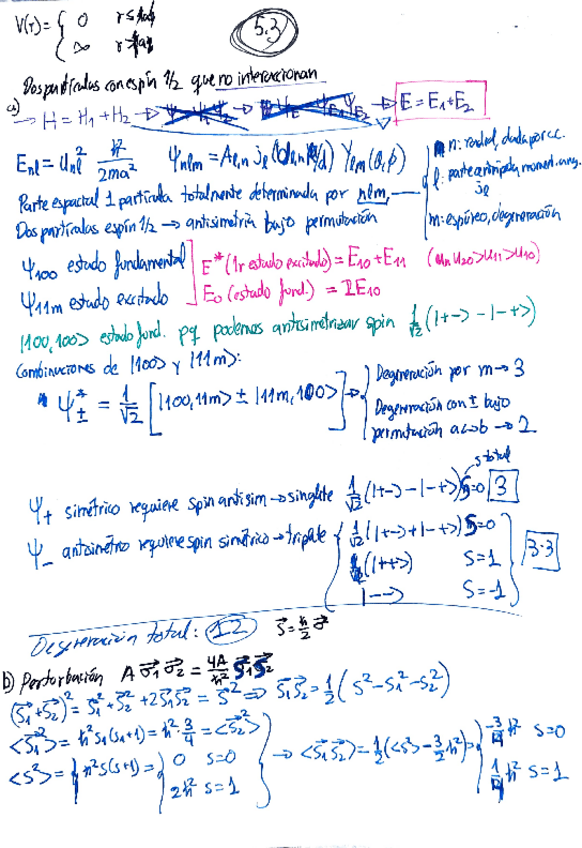 V(r) = { 0 r≤
∞ r>
5.3
Dos partículas con espín 1/2 que no interaccionan
a) → H = H₁ + H₂ → → → E = E₁+E₂
E_nl = u_nl² ħ²/2ma² ψ_nlm = A_l,n j_l( ) Y_lm(θ,φ)
n: radial, dada por c.c.
l: parte moment. ang. j_l
m: degeneración
Parte espacial 1 partícula totalmente determinada por nlm,
Dos partículas espín 1/2 → antisimetría bajo permutación
ψ₁₀₀ estado fundamental
ψ₁₁m estado excitado
E* (1r estado excitado) = E₁₀ + E₁₁ (u₂₀>u₁₁>u₁₀)
E₀ (estado fund.) = 2E₁₀
|100,100> estado fund. pq podemos antisimetrizar spin 1/√2 (|+-> - |-+>)
Combinaciones de |100> y |11m>:
ψ*± = 1/√2 [|100,11m> ± |11m,100>] →
Degeneración por m → 3
Degeneración con ± bajo
permutación a↔b → 2
s total
ψ₊ simétrico requiere spin antisim → singlete 1/√2 (|+-> - |-+>) S=0 3
ψ₋ antisimétrico requiere spin simétrico → triplete { 1/√2 (|+-> + |-+>) S=0
(|++>) S=1
|--> S=-1
3·3
Degeneración total: 12 S⃗ = ħ/2 σ⃗
b) Perturbación A σ⃗₁σ⃗₂ = 4A/ħ² S⃗₁S⃗₂
(S⃗₁+S⃗₂)² = S⃗₁² + S⃗₂² + 2S⃗₁S⃗₂ = S⃗² ⇒ S⃗₁S⃗₂ = 1/2 (S² - S₁² - S₂²)
<S⃗₁²> = ħ² s₁(s₁+1) = ħ² · 3/4 = <S⃗₂²>
<S²> = { ħ² s(s+1) = { 0 s=0
2ħ² s=1
→ <S⃗₁S⃗₂> = 1/2 (<S²> - 3/2 ħ²) = { -3/4 ħ² s=0
1/4 ħ² s=1